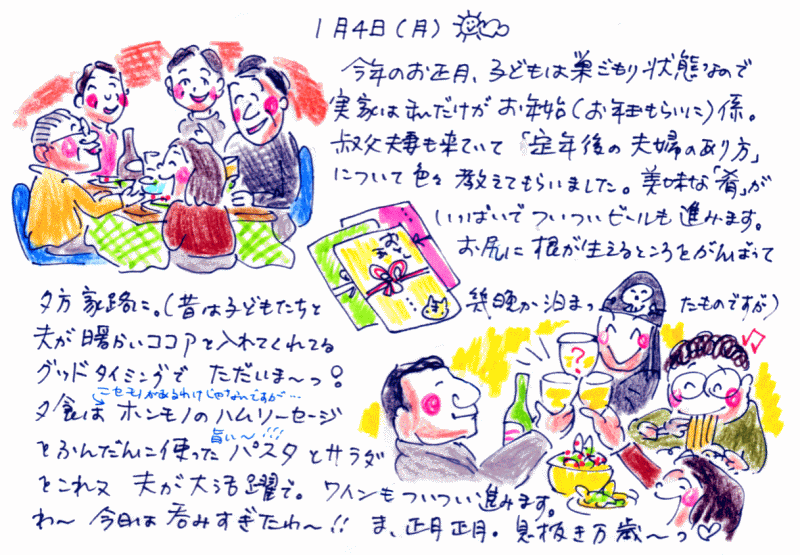 1月4日(月)
今年のお正月、子どもは巣ごもり状態なので
実家は私だけがお年始(お年玉もらいに)係。
叔父夫妻も来ていて「定年後の夫婦のあり方」
について色々教えてもらいました。美味な「肴」が
いっぱいでついついビールも進みます。
お尻に根が生えるところをがんばって
夕方家路に。(昔は子どもたちと幾晩か泊まったものですが)
夫が暖かいココアを入れてくれてる
グッドタイミングでただいま〜っ!
ニセモノがあるわけじゃないですが…
夕食はホンモノのハムソーセージ
をふんだんに使ったパスタとサラダ
旨い〜!!!
をこれ又夫が大活躍で。ワインもついつい進みます。
わ〜今日は呑みすぎたわ〜!! ま、正月正月。息抜き万歳〜っ♡
お年
?